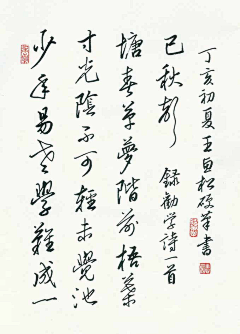 少年易老學難成一
寸光陰不可輕未覺池
塘春草夢階前梧葉
已秋聲 錄勸学詩一首
丁亥初夏王松硬筆書